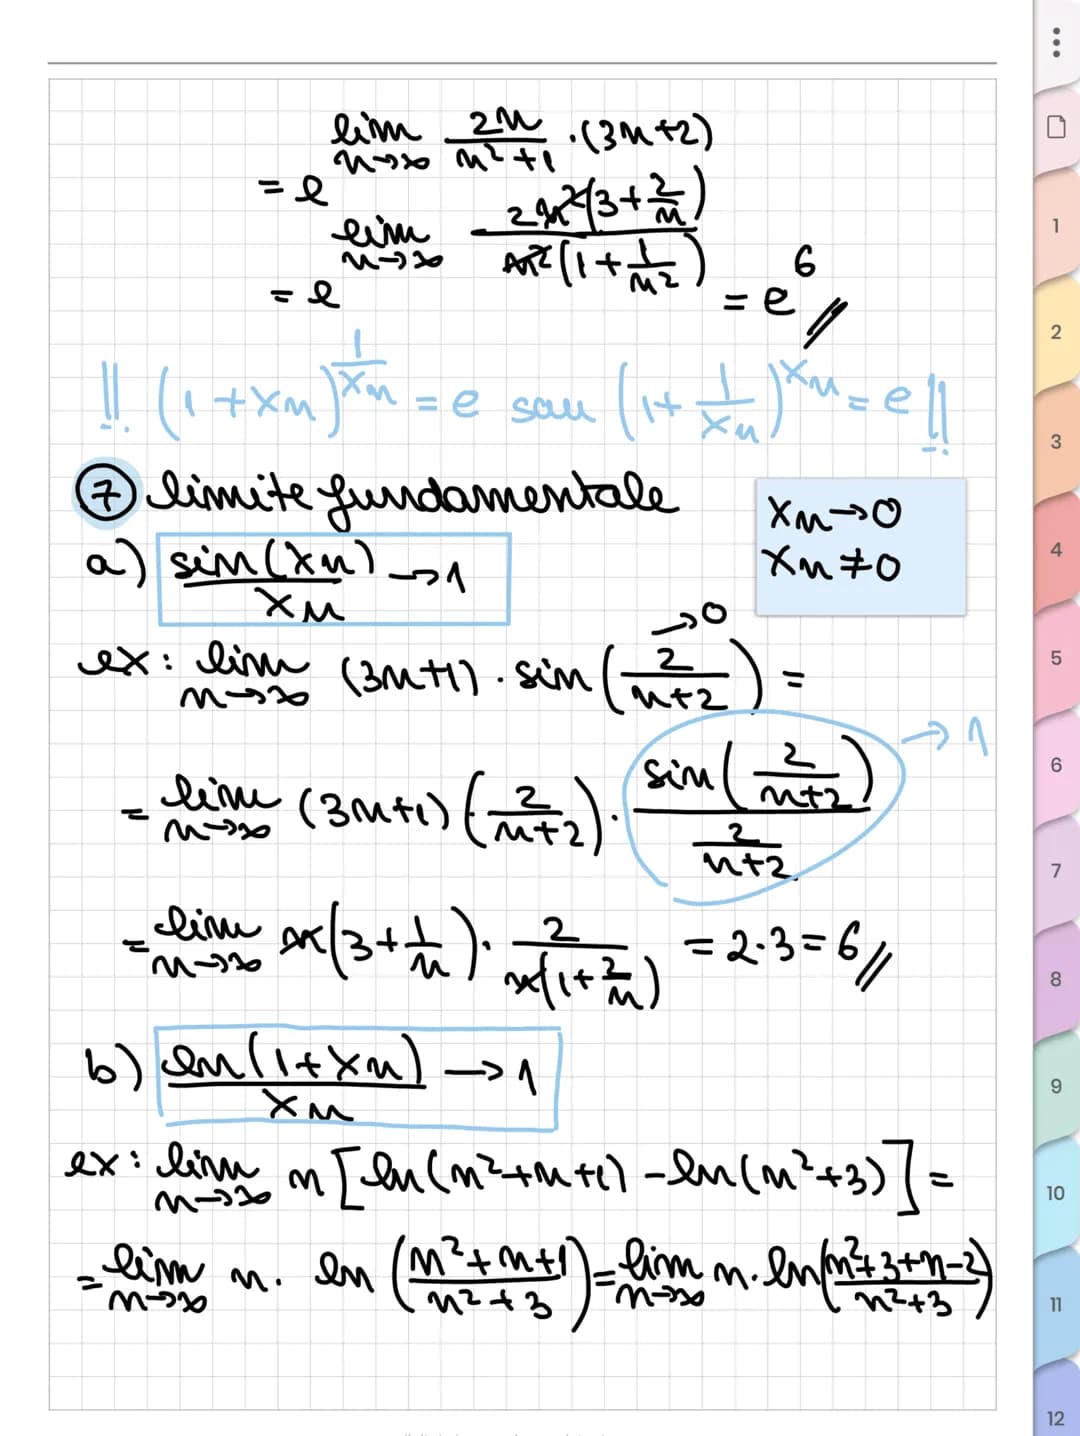 = e^{lim_{n→∞} \frac{2n}{n²+1} · (3n+2)}
= e^{lim_{n→∞} \frac{2n²(3+\frac{2}{n})}{n²(1+\frac{1}{n²})}} = e⁶
!! (1+xn)^{\frac{1}{xn}} = e sau (1+\frac{1}{xn})^{xn} = e !!
⑦ limite fundamentale
xn→0
xn≠0
a) \frac{sin(xn)}{xn} →1
ex: lim_{n→∞} (3n+1) · sin(\frac{2}{n+2}) = →0
= lim_{n→∞} (3n+1)(\frac{2}{n+2}) · \frac{sin(\frac{2}{n+2})}{\frac{2}{n+2}} →1
= lim_{n→∞} n(3+\frac{1}{n}) · \frac{2}{n(1+\frac{2}{n})} = 2·3=6
b) \frac{ln(1+xn)}{xn} →1
ex: lim_{n→∞} n[ln(n²+n+1) - ln(n²+3)] =
= lim_{n→∞} n · ln(\frac{n²+n+1}{n²+3}) = lim_{n→∞} n·ln(\frac{n²+3+n-2}{n²+3})
1
2
3
4
5
6
7
8
9
10
11
12